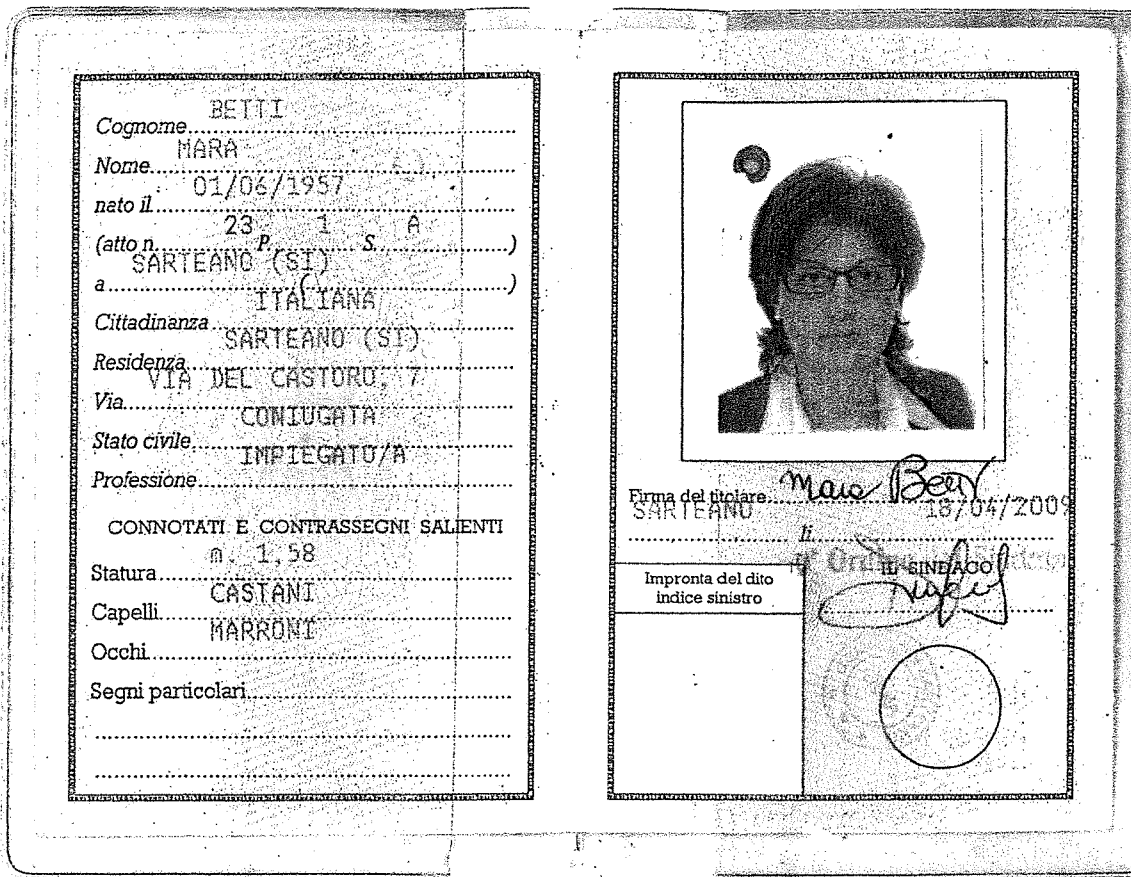 Cognome BETTI
Nome MARA
nato il 01/06/1957
(atto n. 23 P. 1 S. A)
a SARTEANO (SI) ( )
Cittadinanza ITALIANA
Residenza SARTEANO (SI)
Via VIA DEL CASTORO, 7
Stato civile CONIUGATA
Professione IMPIEGATO/A
CONNOTATI E CONTRASSEGNI SALIENTI
Statura m. 1,58
Capelli CASTANI
Occhi MARRONI
Segni particolari
Firma del titolare Mara Betti
SARTEANO li 18/04/2009
IL SINDACO
Impronta del dito
indice sinistro